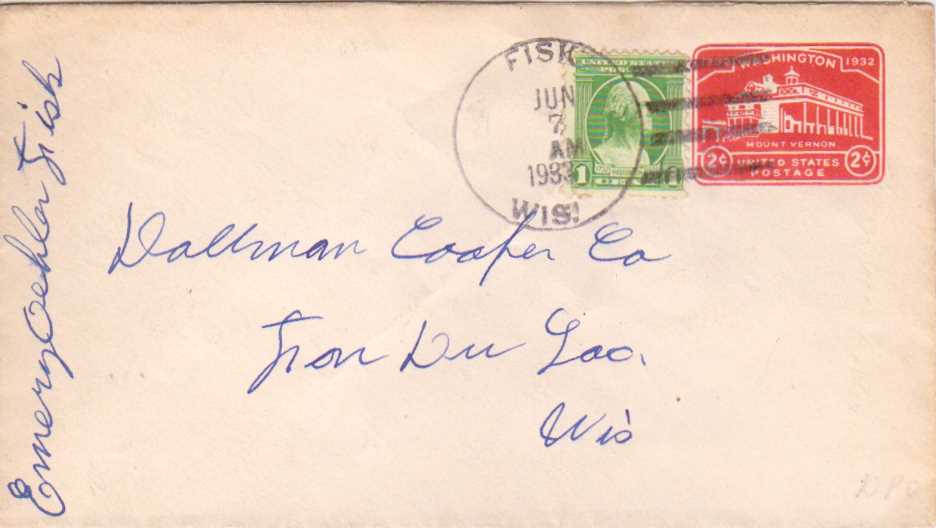 Emery Oehler Fisk
FISK
JUN
7
AM
1933
WIS.
UNITED STATES
1
WASHINGTON 1932
MOUNT VERNON
2¢ UNITED STATES 2¢
POSTAGE
Dallman Cooper Co
Fron Du Lac.
Wis
DPO